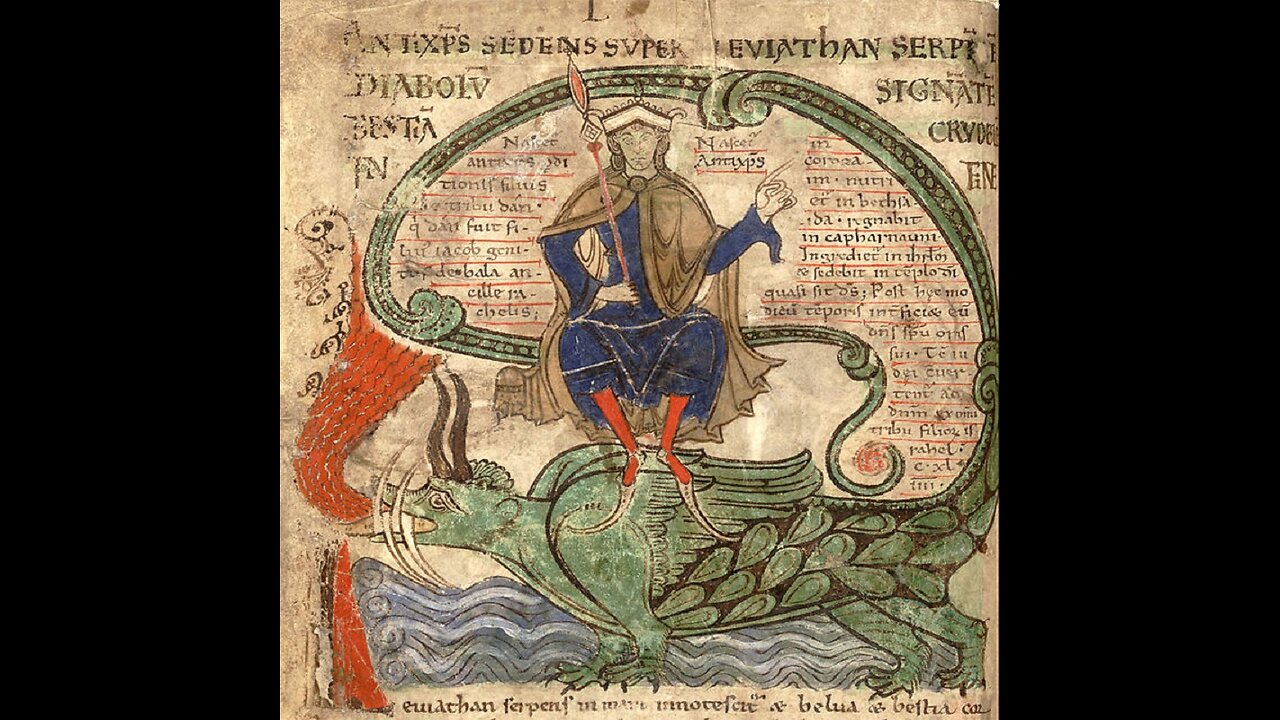 L
ANTIXP̄S SEDENS SVPER LEVIATHAN SERP
DIABOLV̄ SIGNĀTĒ
BESTIĀ CRVDE
IN FINE
Nascet
antixp̄s
tionis filius
tribu dan ·
q̄ dan fuit fi-
iacob geni-
de bala an-
cille ra-
chelis;
Nascet᷑
Antixp̄s
in
coroza-
im · nutri
et᷑ in bethsa
ida · regnabit
in capharnaum ·
Ingrediet᷑ in ihrl̄m
& sedebit in tēplo dī
quasi sit d̄s; Post hęc mo
dicū tēporis int̄ficiet eū
dn̄s sp̄u oris
sui · Tē iu
dei
tent᷑ ad
dn̄m
tribu filior̄ is
rahel ·
c · xl ·
iiii ·
euiathan serpens in mari innotescit᷑ & belua & bestia